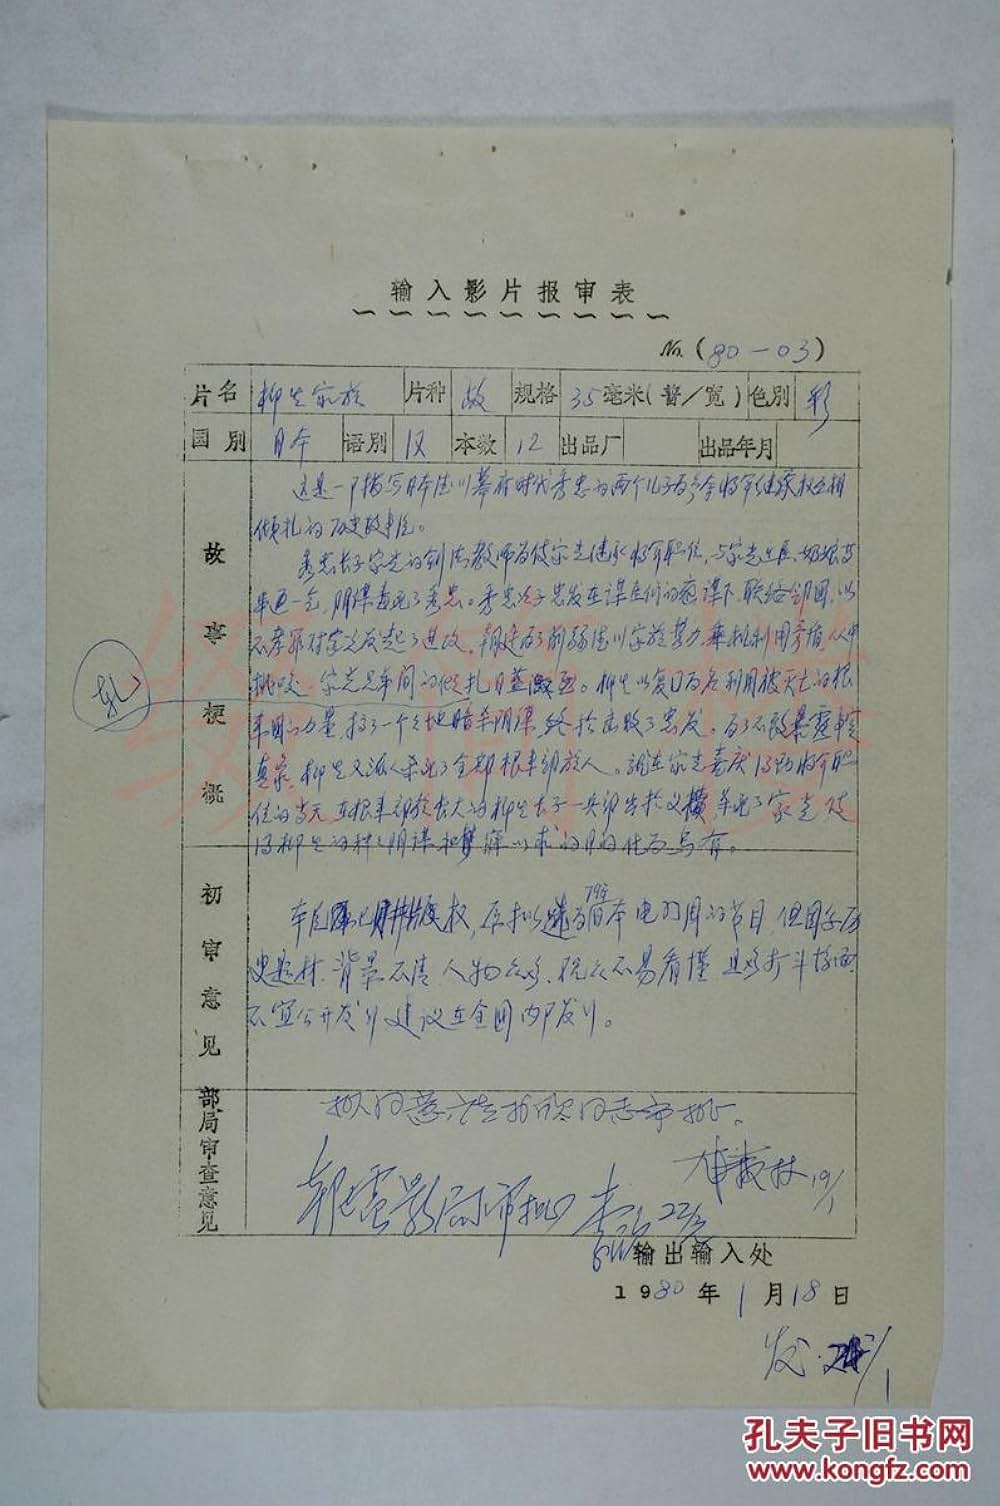 输入影片报审表
№ (80-03)
片名 柳生家族 片种 故 规格 35毫米(普/宽) 色别 彩
国别 日本 语别 汉 本数 12 出品厂 出品年月
故事梗概
这是一部描写日本德川幕府时代秀忠的两个儿子为争夺将军继承权互相
倾轧的历史故事片。
秀忠长子家光的剑法教师为使家光继承将军职位,与家光
阴谋毒死了秀忠。秀忠次子忠发在谋臣们的 谋下,联络邻国,以
不孝罪对家光发起了进攻。朝廷为了削弱德川家族势力,乘机利用矛盾,从中
挑唆,家光兄弟间的倾轧日益激烈。柳生以复国为名利用被灭亡的根
来国的力量,搞了一个个地暗杀阴谋,终于击败了忠发。为了不致暴露事实
真象,柳生又派人杀死了全部根来部族人。就在家光喜庆得到将军职
位的当天,在根来部族长大的柳生长子一 杀死了家光,使
得柳生的种种阴谋和 以求的目的化为乌有。
轧
初审意见
版权,原拟 为79年日本电影周的节目,但因系历
史题材,背景不清,人物众多,观众不易看懂,且多打斗场面,
不宜公开发行,建议在全国内部发行。
部局审查意见
拟同意,请 同志审批。
19/1
电影局审批
输出输入处
1980年1月18日
发.
孔夫子旧书网
www.kongfz.com